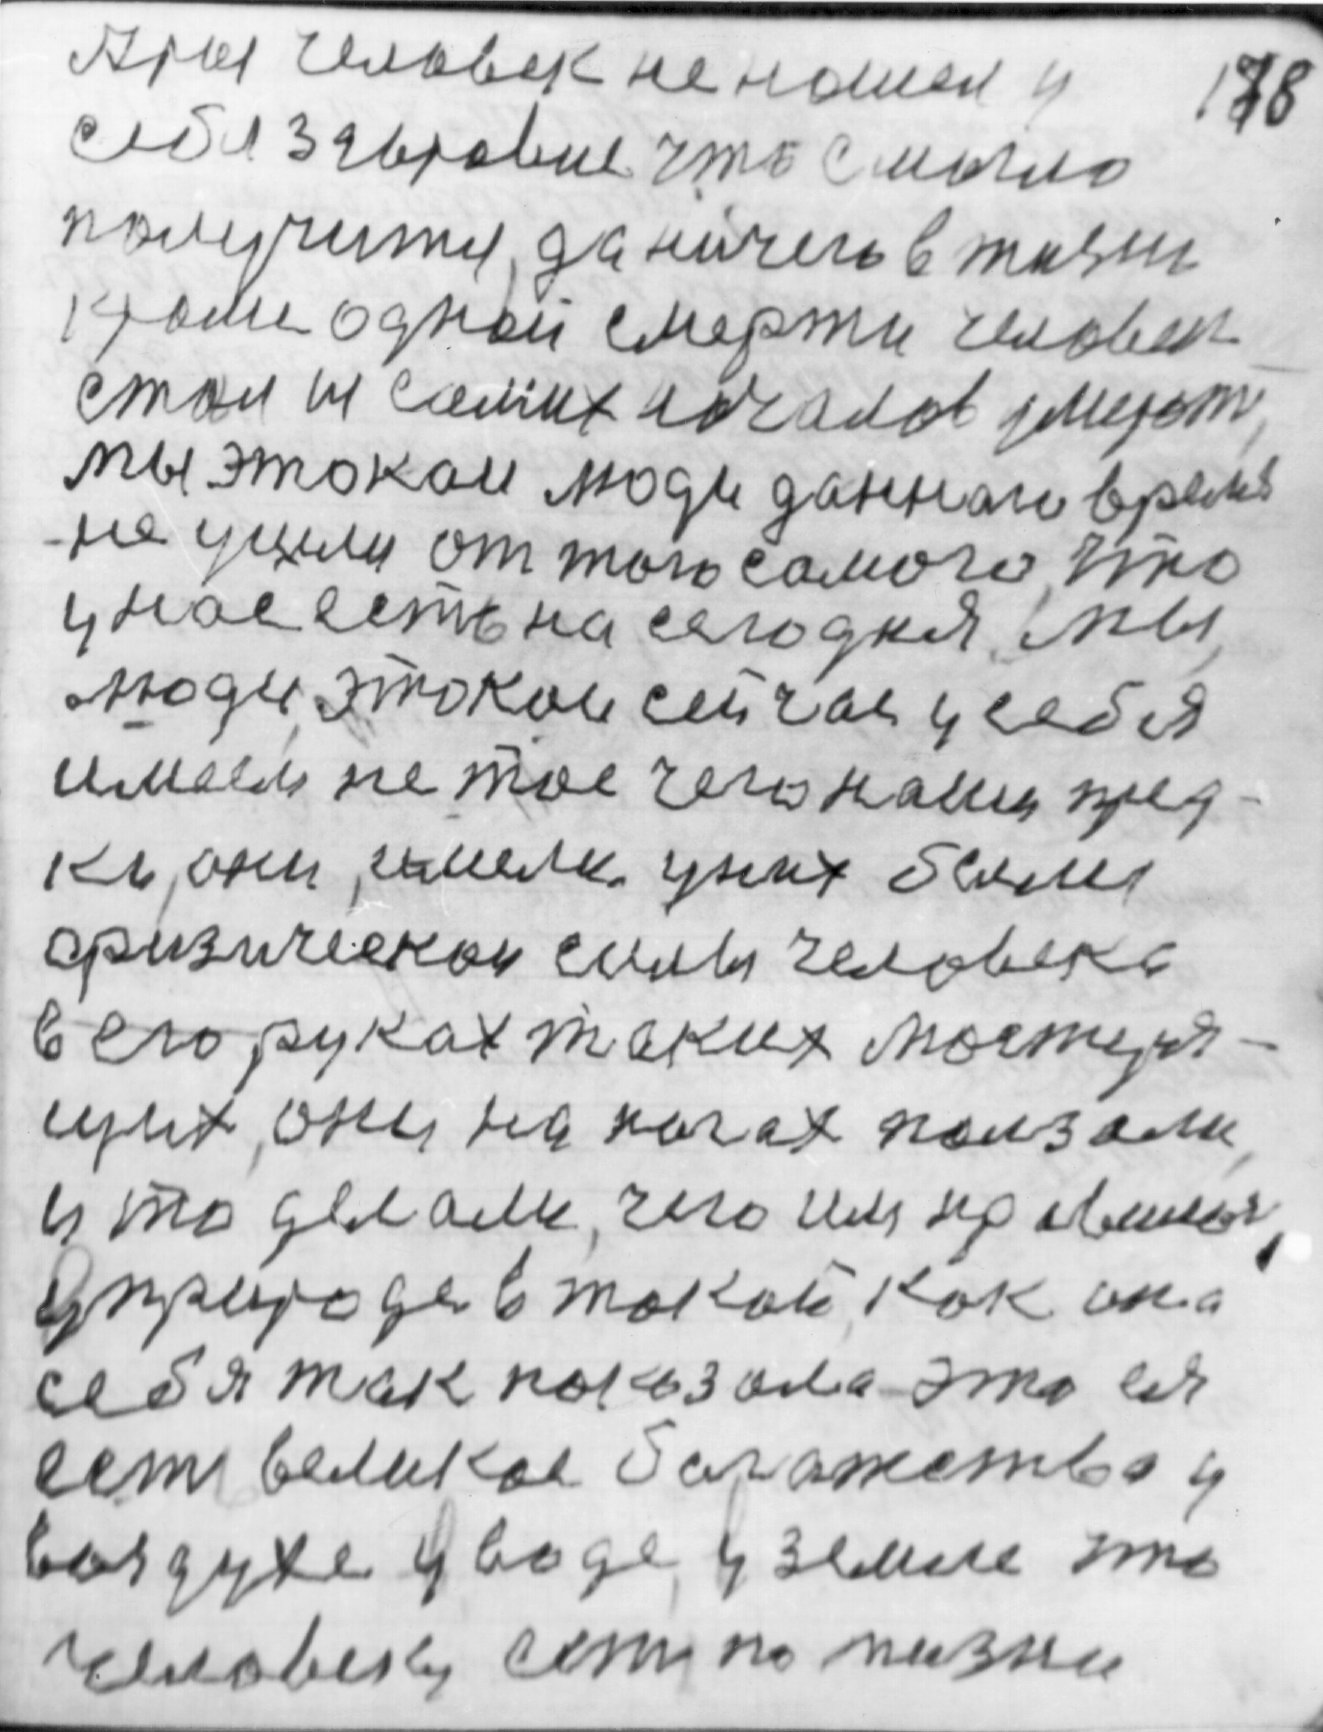 А ты человек не нашел у 188
себя здоровие что смогло
получится, да ничего в жизни
кроме одной смерти человек
стал и самих началов умерат,
мы этокаи люди данного время
не ушли от того самого, что
у нас есть на сегодня, мы,
люди, этокаи сейчас у себя
имеем не тое чего наши пред-
ки, они, имели. у них были
физическои силы человека
в его руках таких мастеря-
щих, они на ногах ползали,
и то делали, чего им нравилось,
У природе в такой, как она
себя так показала это ея
есть великое богажество у
воздухе у воде, у земле это
человеку есть по жизни